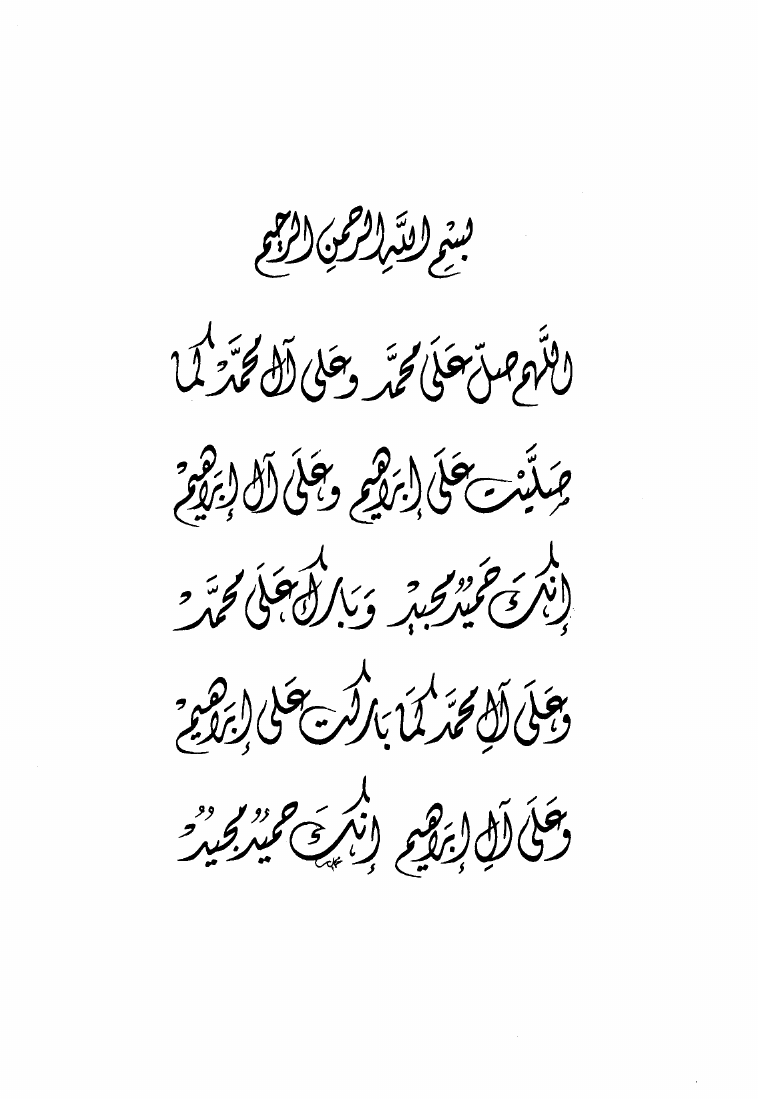 بسم الله الرحمن الرحيم
اللهم صل على محمد وعلى آل محمد كما
صليت على إبراهيم وعلى آل إبراهيم
إنك حميد مجيد وبارك على محمد
وعلى آل محمد كما باركت على إبراهيم
وعلى آل إبراهيم إنك حميد مجيد